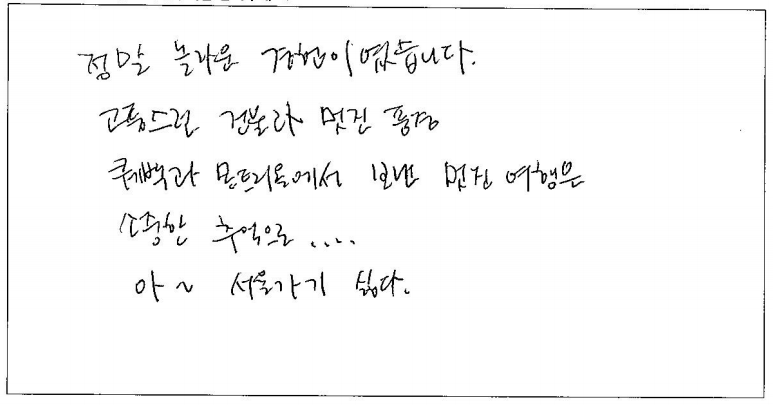 정말 놀라운 경험이였습니다.
고풍스런 건물과 멋진 풍경
퀘백과 몬트리올에서 보낸 멋진 여행은
소중한 추억으로 ....
아 ~ 서울가기 싫다.